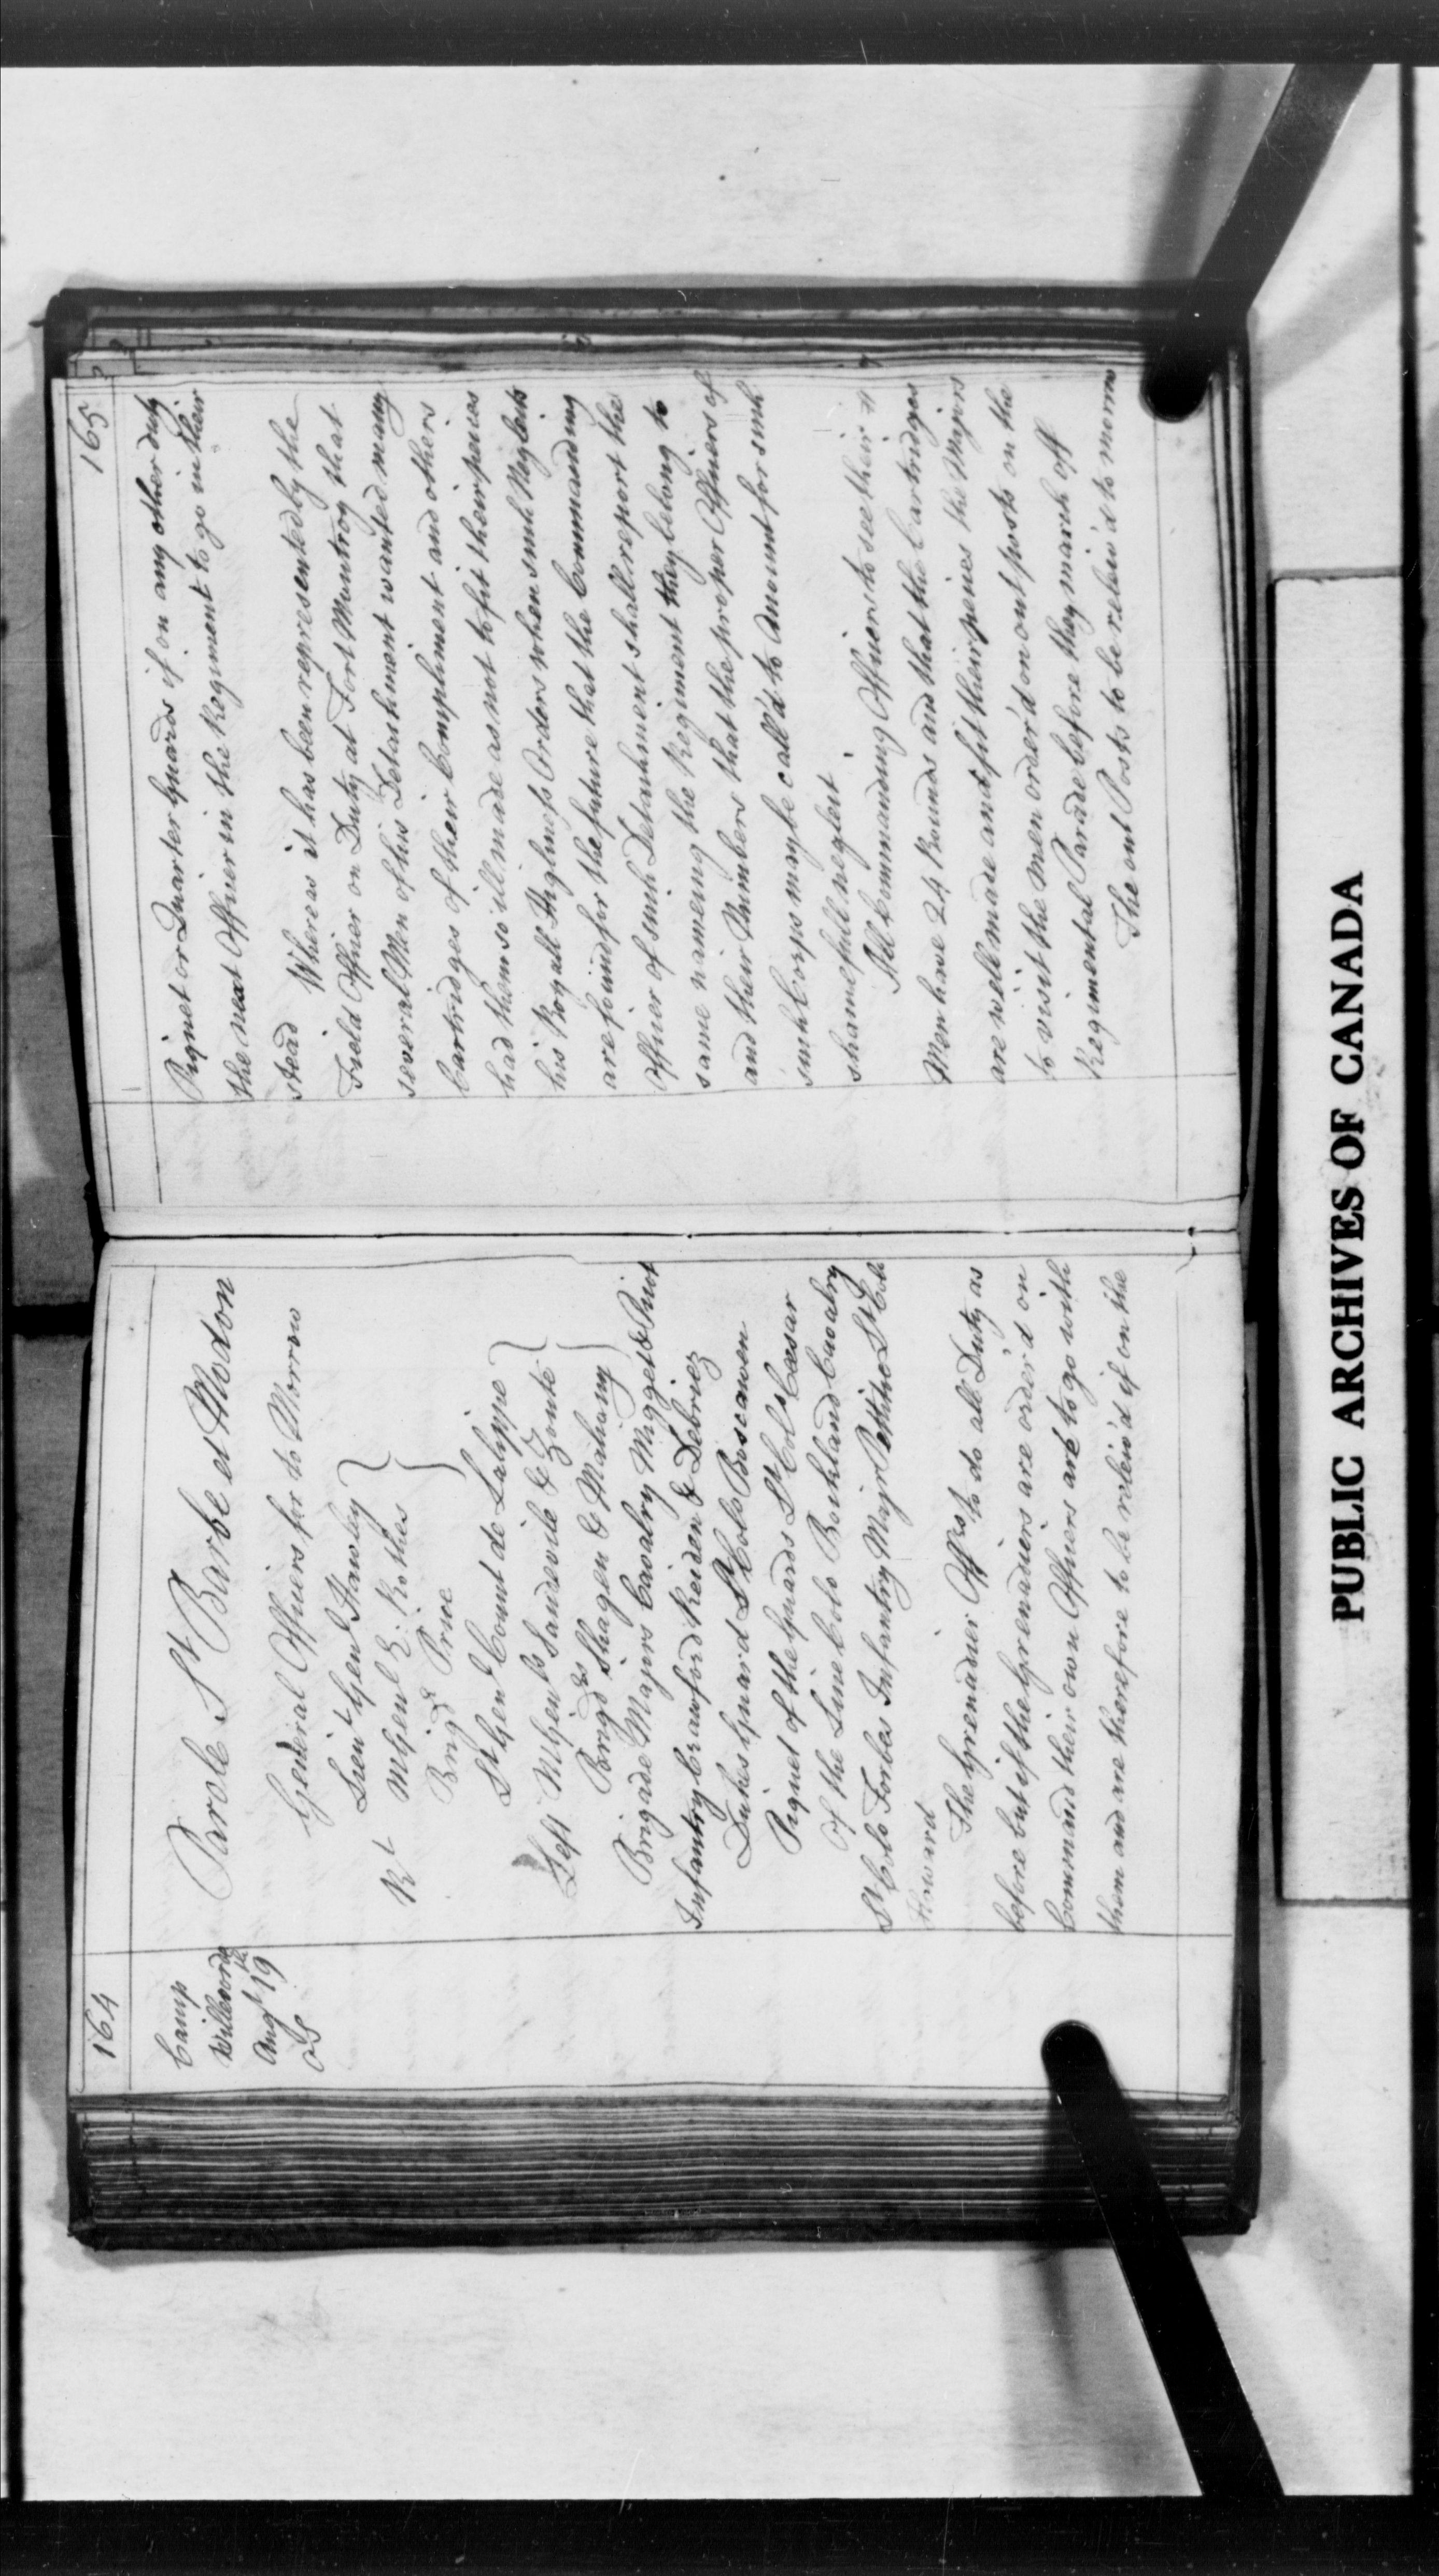 164
Camp
Willevorde
Augt 19th
OS
Parole St Barbe et Modon
General Officers for to Morrow
Lieut Genl Hawley
Rt MGenl E: Rothes
Brigdr Price
Lt Genl Count de Lalippe
Left MGenls Sandevile & Zoute
Brigdrs Shagen & Mahony
Brigade Majors Cavalry Migget &
Infantry Crawford Keiden & Debriez
Dukes Guard Lt Colo Boscawen
Piquet of the Guards Lt Colo Cæsar
Of the Line Colo Bockland Cavalry
Lt Colo Forbes Infantry Majr Lt Colo
Howard
The Grenadier Offrs to do all Duty as
before but if the Grenadiers are order'd on
Command their own Officers are to go with
them and are therefore to be reliev'd if on the
165
Piquet or Quarter Guards if on any other duty
the next Officer in the Regiment to go in their
stead
Whereas it has been represented by the
Field Officer on Duty at Fort Muntroy that
several Men of his Detachment wanted many
Cartridges of their Compliment and others
had them so ill made as not to fit their peices
his Royall Highness Orders when such Neglects
are found for the future that the Commanding
Officer of such Detachment shall report the
same nameing the Regiment they belong to
and their Numbers that the proper Officers of
such Corps may be call'd to Account for such
shamefull neglect
All Commanding Officers to see their
Men have 24 Rounds and that the Cartridges
are well made and fit their peices the Majors
to visit the Men order'd on out posts on the
Regimental Parade before they march off
The out Posts to be reliev'd to morrow
PUBLIC ARCHIVES OF CANADA